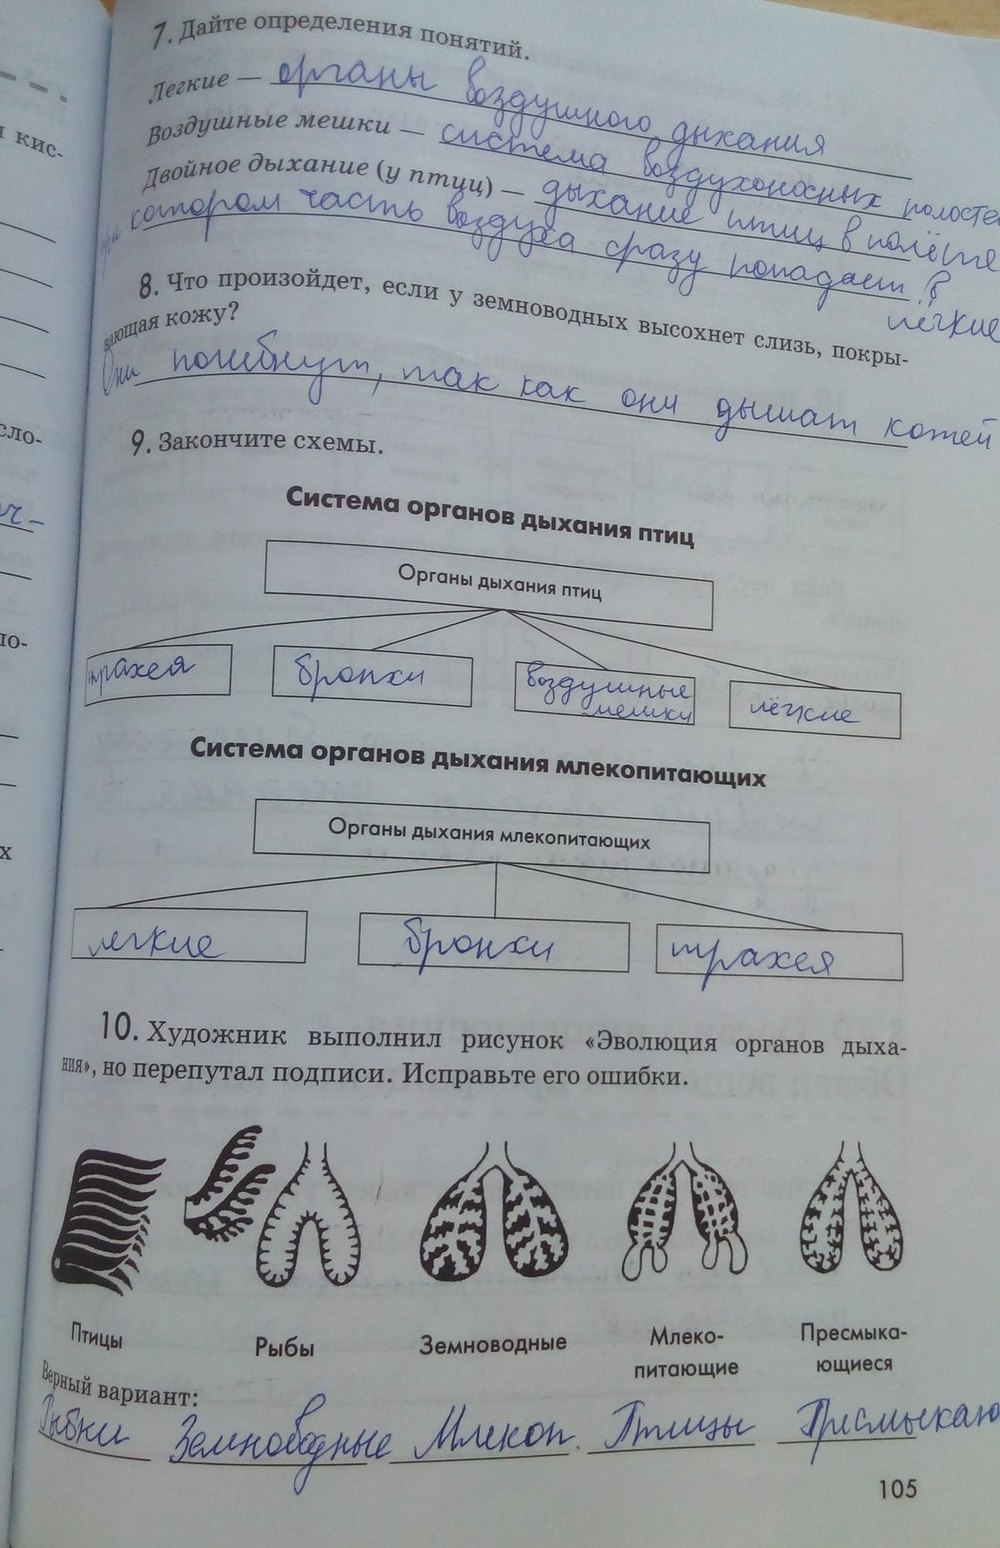 7. Дайте определения понятий.
Легкие — органы воздушного дыхания
Воздушные мешки — система воздухоносных полосте
Двойное дыхание (у птиц) — дыхание птиц в полёте
при котором часть воздуха сразу попадает в
лёгкие
8. Что произойдет, если у земноводных высохнет слизь, покры-
вающая кожу?
Они погибнут, так как они дышат кожей
9. Закончите схемы.
Система органов дыхания птиц
Органы дыхания птиц
трахея бронхи воздушные мешки лёгкие
Система органов дыхания млекопитающих
Органы дыхания млекопитающих
легкие бронхи трахея
10. Художник выполнил рисунок «Эволюция органов дыха-
ния», но перепутал подписи. Исправьте его ошибки.
Птицы Рыбы Земноводные Млеко-
питающие Пресмыка-
ющиеся
Верный вариант:
Рыбки Земноводные Млекоп. Птицы Пресмыкаю
105
кис-
сло-
ч-
ло-
х